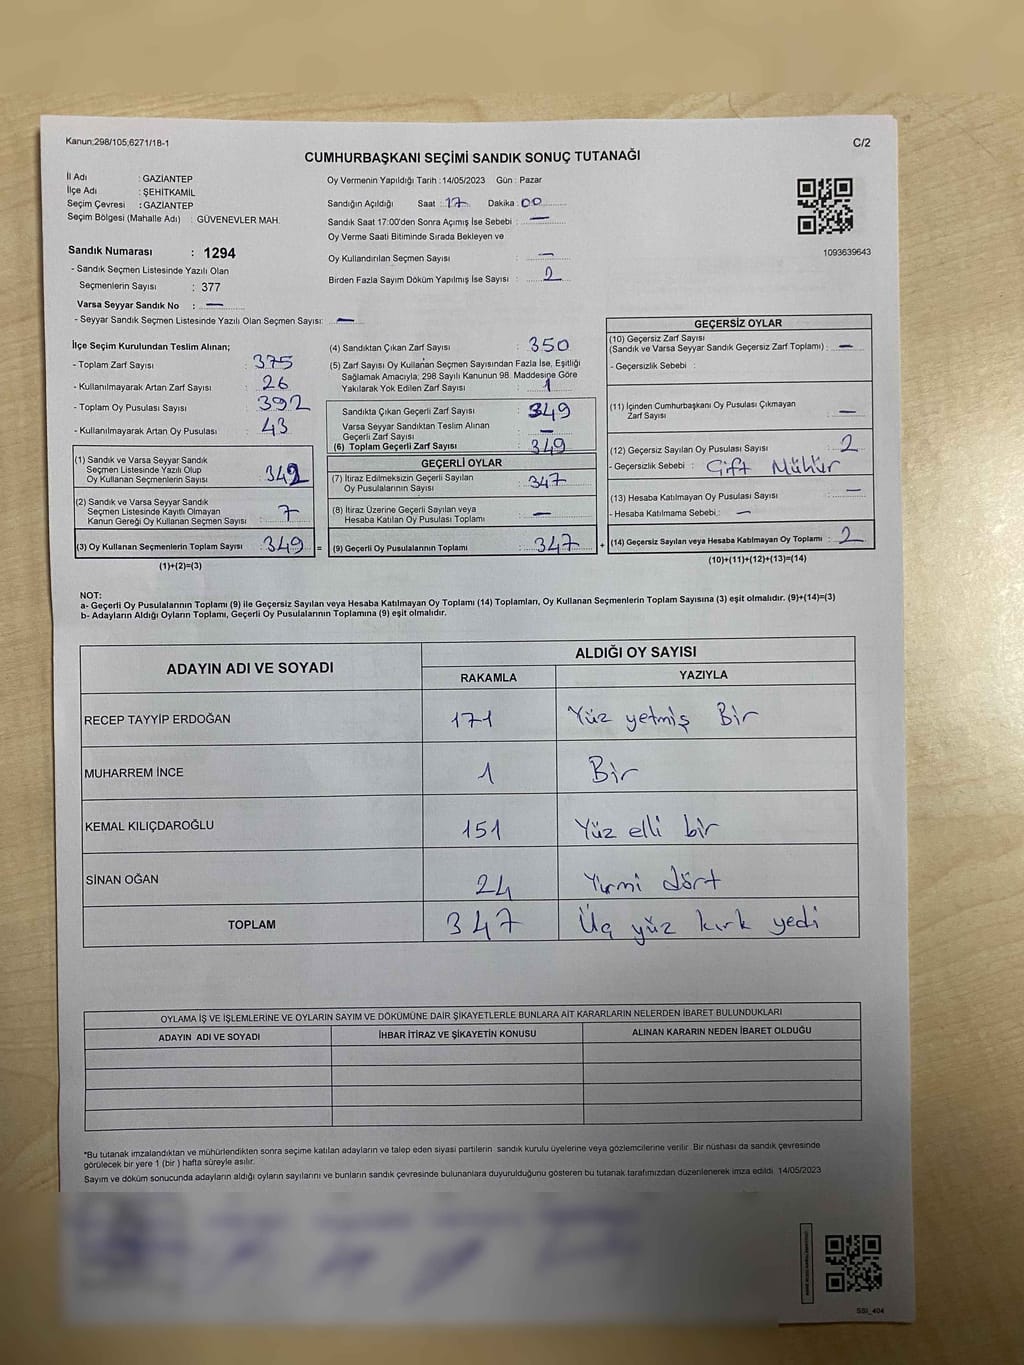 Kanun:298/105,6271/18-1
C/2
CUMHURBAŞKANI SEÇİMİ SANDIK SONUÇ TUTANAĞI
İl Adı : GAZİANTEP
İlçe Adı : ŞEHİTKAMİL
Seçim Çevresi : GAZİANTEP
Seçim Bölgesi (Mahalle Adı) : GÜVENEVLER MAH.
Sandık Numarası : 1294
- Sandık Seçmen Listesinde Yazılı Olan
Seçmenlerin Sayısı : 377
Varsa Seyyar Sandık No : —
- Seyyar Sandık Seçmen Listesinde Yazılı Olan Seçmen Sayısı: —
Oy Vermenin Yapıldığı Tarih : 14/05/2023 Gün : Pazar
Sandığın Açıldığı Saat : 17 Dakika : 00
Sandık Saat 17:00'den Sonra Açımış İse Sebebi : —
Oy Verme Saati Bitiminde Sırada Bekleyen ve
Oy Kullandırılan Seçmen Sayısı : —
Birden Fazla Sayım Döküm Yapılmış İse Sayısı : 2
1093639643
İlçe Seçim Kurulundan Teslim Alınan;
- Toplam Zarf Sayısı : 375
- Kullanılmayarak Artan Zarf Sayısı : 26
- Toplam Oy Pusulası Sayısı : 392
- Kullanılmayarak Artan Oy Pusulası : 43
(1) Sandık ve Varsa Seyyar Sandık
Seçmen Listesinde Yazılı Olup
Oy Kullanan Seçmenlerin Sayısı : 342
(2) Sandık ve Varsa Seyyar Sandık
Seçmen Listesinde Kayıtlı Olmayan
Kanun Gereği Oy Kullanan Seçmen Sayısı : 7
(3) Oy Kullanan Seçmenlerin Toplam Sayısı : 349 =
(1)+(2)=(3)
(4) Sandıktan Çıkan Zarf Sayısı : 350
(5) Zarf Sayısı Oy Kullanan Seçmen Sayısından Fazla İse, Eşitliği
Sağlamak Amacıyla; 298 Sayılı Kanunun 98. Maddesine Göre
Yakılarak Yok Edilen Zarf Sayısı : 1
Sandıkta Çıkan Geçerli Zarf Sayısı : 349
Varsa Seyyar Sandıktan Teslim Alınan
Geçerli Zarf Sayısı : —
(6) Toplam Geçerli Zarf Sayısı : 349
GEÇERLİ OYLAR
(7) İtiraz Edilmeksizin Geçerli Sayılan
Oy Pusulalarının Sayısı : 347
(8) İtiraz Üzerine Geçerli Sayılan veya
Hesaba Katılan Oy Pusulası Toplamı : —
(9) Geçerli Oy Pusulalarının Toplamı : 347 +
GEÇERSİZ OYLAR
(10) Geçersiz Zarf Sayısı
(Sandık ve Varsa Seyyar Sandık Geçersiz Zarf Toplamı) : —
- Geçersizlik Sebebi :
(11) İçinden Cumhurbaşkanı Oy Pusulası Çıkmayan
Zarf Sayısı : —
(12) Geçersiz Sayılan Oy Pusulası Sayısı : 2
- Geçersizlik Sebebi : Çift Mühür
(13) Hesaba Katılmayan Oy Pusulası Sayısı : —
- Hesaba Katılmama Sebebi : —
(14) Geçersiz Sayılan veya Hesaba Katılmayan Oy Toplamı : 2
(10)+(11)+(12)+(13)=(14)
NOT:
a- Geçerli Oy Pusulalarının Toplamı (9) ile Geçersiz Sayılan veya Hesaba Katılmayan Oy Toplamı (14) Toplamları, Oy Kullanan Seçmenlerin Toplam Sayısına (3) eşit olmalıdır. (9)+(14)=(3)
b- Adayların Aldığı Oyların Toplamı, Geçerli Oy Pusulalarının Toplamına (9) eşit olmalıdır.
ADAYIN ADI VE SOYADI
ALDIĞI OY SAYISI
RAKAMLA YAZIYLA
RECEP TAYYİP ERDOĞAN 171 Yüz yetmiş Bir
MUHARREM İNCE 1 Bir
KEMAL KILIÇDAROĞLU 151 Yüz elli bir
SİNAN OĞAN 24 Yirmi dört
TOPLAM 347 Üç yüz kırk yedi
OYLAMA İŞ VE İŞLEMLERİNE VE OYLARIN SAYIM VE DÖKÜMÜNE DAİR ŞİKAYETLERLE BUNLARA AİT KARARLARIN NELERDEN İBARET BULUNDUKLARI
ADAYIN ADI VE SOYADI İHBAR İTİRAZ VE ŞİKAYETİN KONUSU ALINAN KARARIN NEDEN İBARET OLDUĞU
*Bu tutanak imzalandıktan ve mühürlendikten sonra seçime katılan adayların ve talep eden siyasi partilerin sandık kurulu üyelerine veya gözlemcilerine verilir. Bir nüshası da sandık çevresinde
görülecek bir yere 1 (bir) hafta süreyle asılır.
Sayım ve döküm sonucunda adayların aldığı oyların sayılarını ve bunların sandık çevresinde bulunanlara duyurulduğunu gösteren bu tutanak tarafımızdan düzenlenerek imza edildi. 14/05/2023
SSI_404